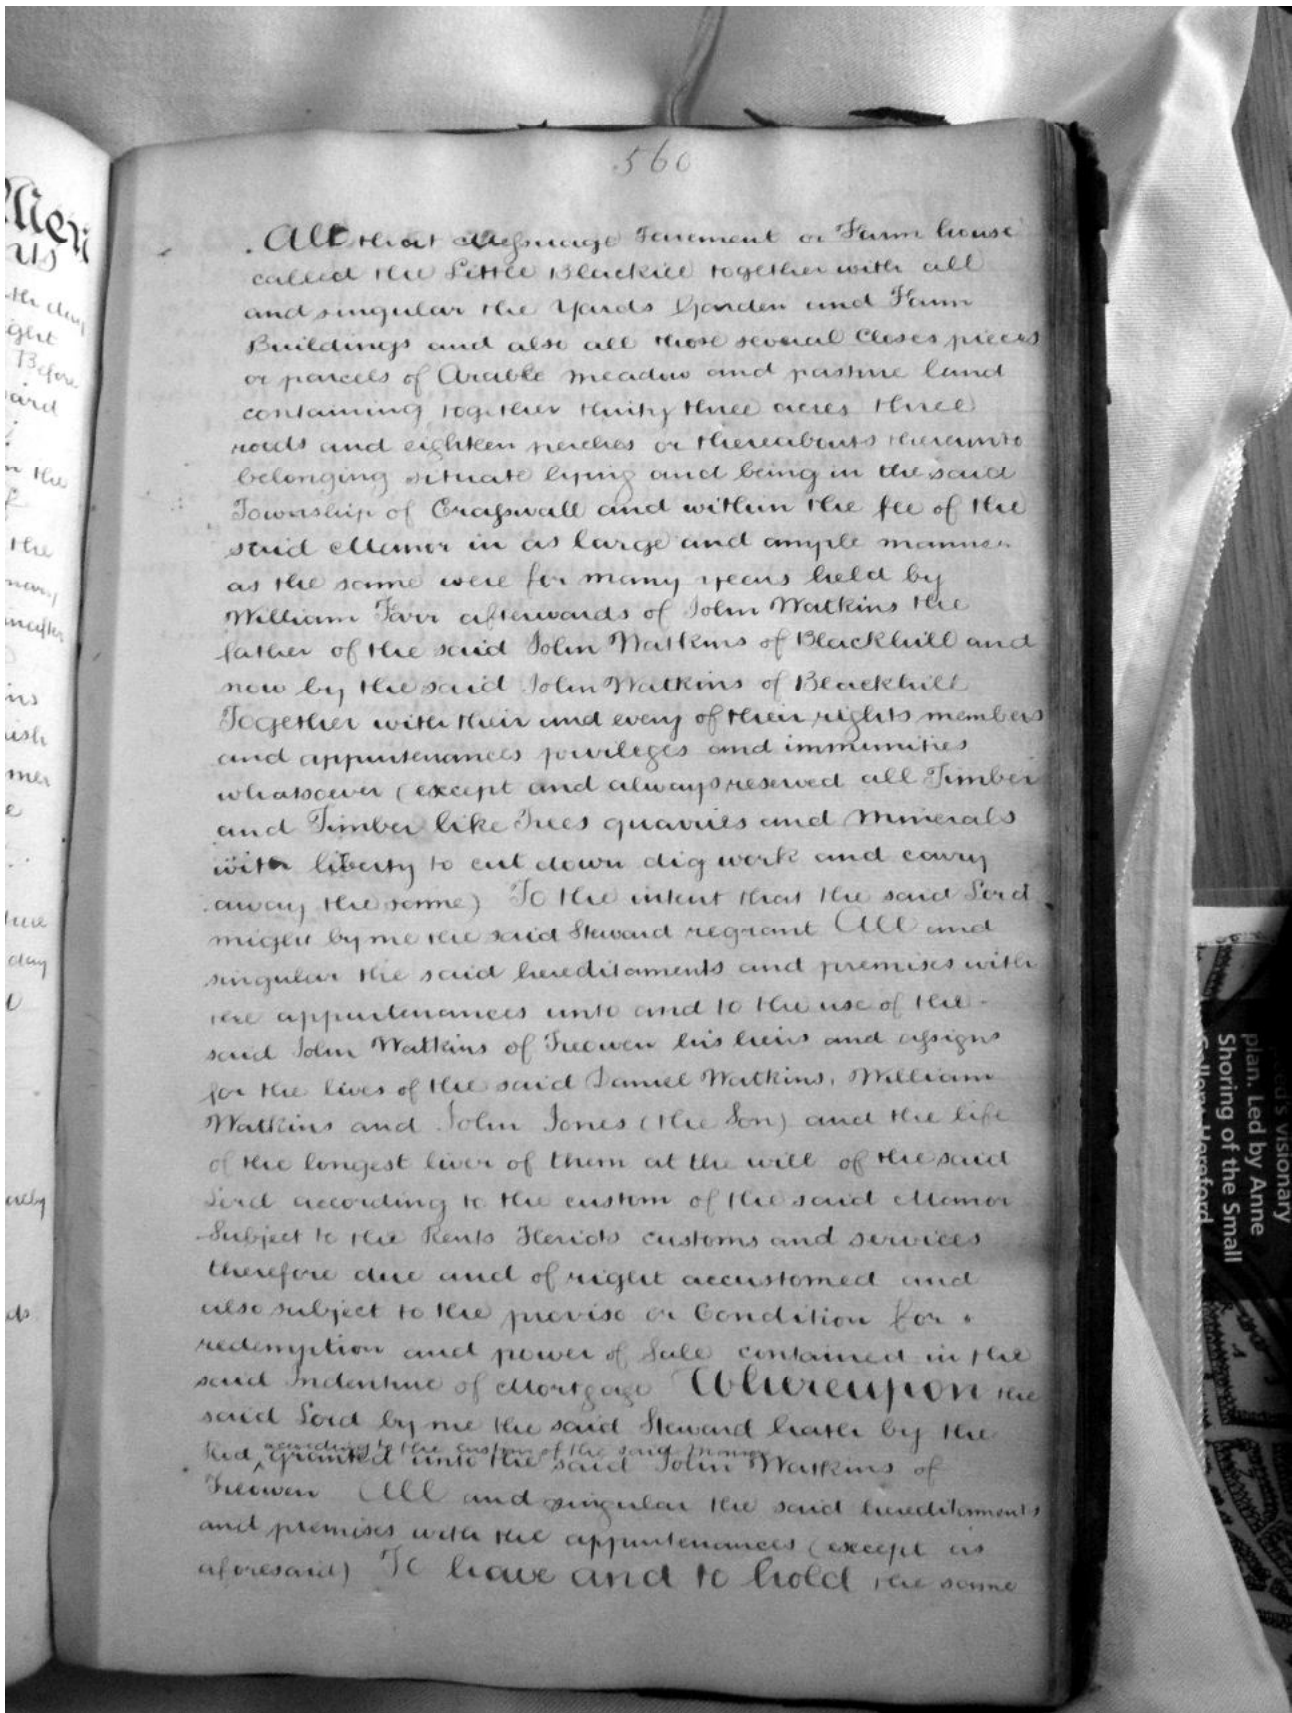 560
All that Messuage Tenement or Farm house
called the Little Blackill together with all
and singular the Yards Garden and Farm
Buildings and also all those several Closes pieces
or parcels of Arable meadow and pasture land
containing together thirty three acres three
roods and eighteen perches or thereabouts thereunto
belonging situate lying and being in the said
Township of Craswall and within the fee of the
said Manor in as large and ample manner
as the same were for many years held by
William Farr afterwards of John Watkins the
father of the said John Watkins of Blackhill and
now by the said John Watkins of Blackhill
Together with their and every of their rights members
and appurtenances privileges and immunities
whatsoever (except and always reserved all Timber
and Timber like Trees quarries and Minerals
with liberty to cut down dig work and carry
away the same) To the intent that the said Lord
might by me the said Steward regrant All and
singular the said hereditaments and premises with
the appurtenances unto and to the use of the
said John Watkins of Treowen his heirs and assigns
for the lives of the said Daniel Watkins, William
Watkins and John Jones (the Son) and the life
of the longest liver of them at the will of the said
Lord according to the custom of the said Manor
Subject to the Rents Heriots customs and services
therefore due and of right accustomed and
also subject to the proviso or Condition for
redemption and power of Sale contained in the
said Indenture of Mortgage Whereupon the
said Lord by me the said Steward hath by the
according to the custom of the said Manor
Rod ^ granted unto the said John Watkins of
Treowen All and singular the said hereditaments
and premises with the appurtenances (except as
aforesaid) To have and to hold the same
ght
Before
the
day
visionary
plan. Led by Anne
Shoring of the Small
Gallery Hereford